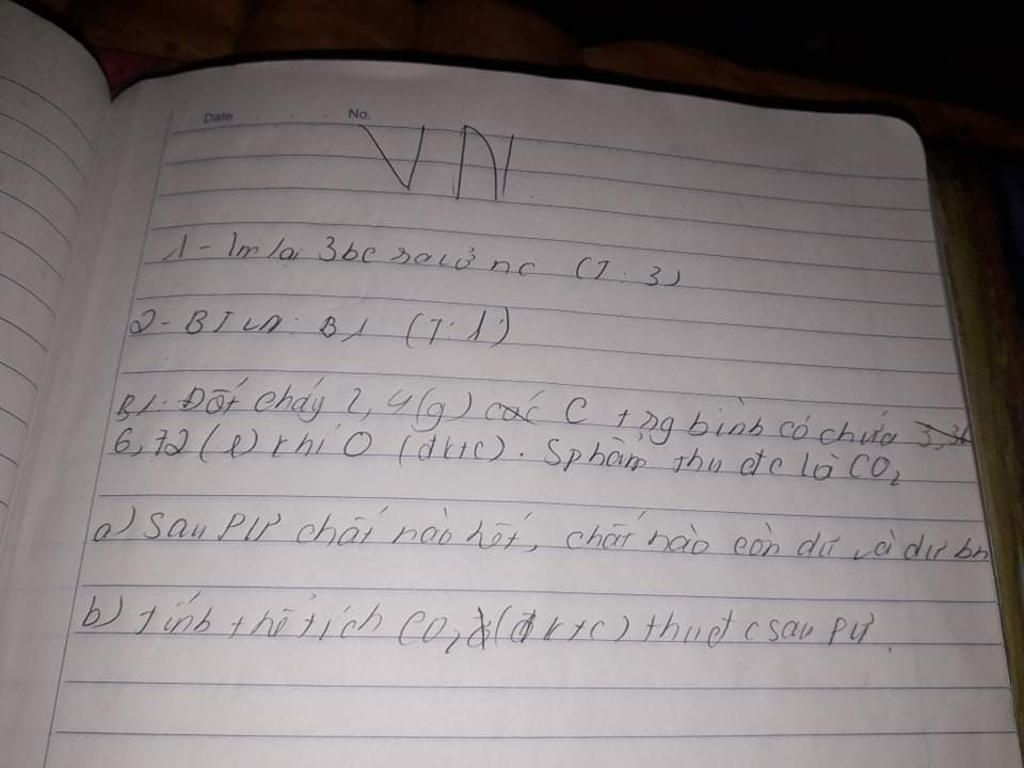 Date No.
VN
1 - lm lại 3bc ra ở nc (T: 3)
2 - BT B1 (T: 1)
B1: Đốt cháy 2,4(g) C trg bình có chứa
6,72 (l) khí O (đktc). Sphẩm thu đc là CO2
a) Sau PƯ chất nào hết, chất nào còn dư và dư bn
b) tính thể tích CO2 (đktc) thu đc sau PƯ.